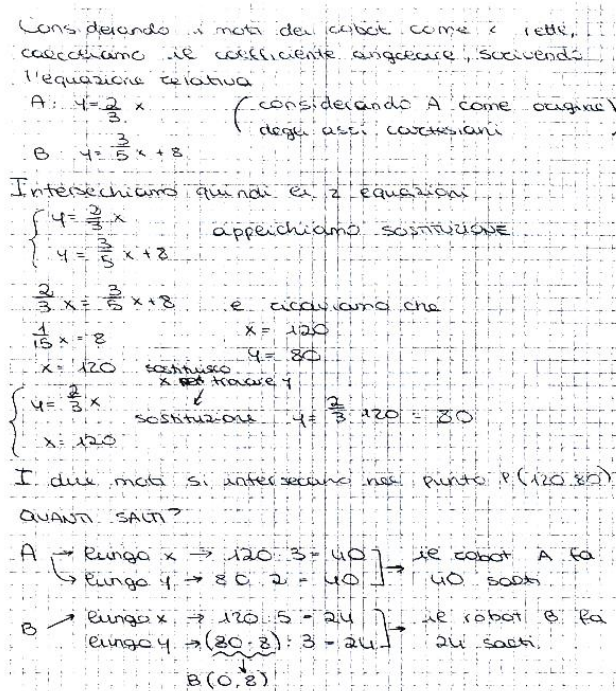 Considerando i moti dei robot come 2 rette,
calcoliamo il coefficiente angolare, scrivendo
l'equazione relativa
A: y = 2/3 x (considerando A come origine)
degli assi cartesiani
B: y = 3/5 x + 8
Intersechiamo quindi le 2 equazioni
{ y = 2/3 x
y = 3/5 x + 8
applichiamo SOSTITUZIONE
2/3 x = 3/5 x + 8 e ricaviamo che
1/15 x = 8 x = 120
x = 120 y = 80
sostituisco
x per trovare y
{ y = 2/3 x
x = 120
sostituzione y = 2/3 · 120 = 80
I due moti si intersecano nel punto P(120,80)
QUANTI SALTI?
A → lungo x → 120 : 3 = 40 ] → il robot A fa
↳ lungo y → 80 : 2 = 40 ] 40 salti
B → lungo x → 120 : 5 = 24 ] → il robot B fa
lungo y → (80-8) : 3 = 24 ] 24 salti.
B(0,8)